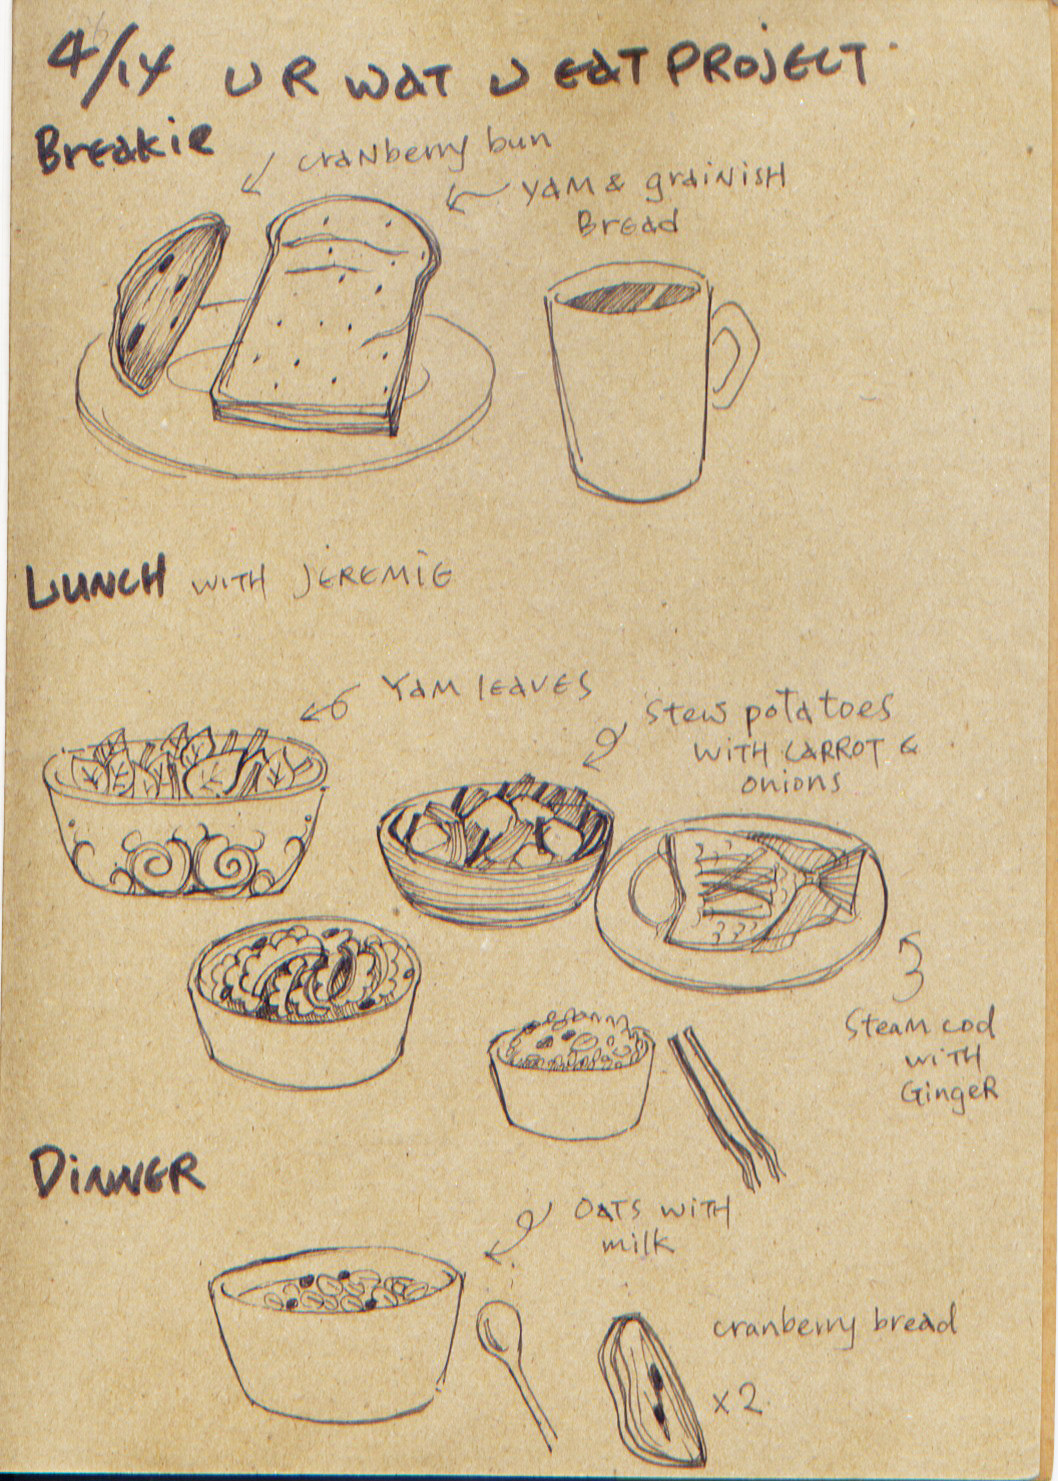 4/14 U R WAT U EAT PROJECT
Breakie
cranberry bun
YAM & grainisH
Bread
LUNCH WITH JEREMIE
YAM leaves
Stew potatoes
WITH CARROT &
onions
Steam cod
with
Ginger
DINNER
OATS WITH
milk
cranberry bread
x2